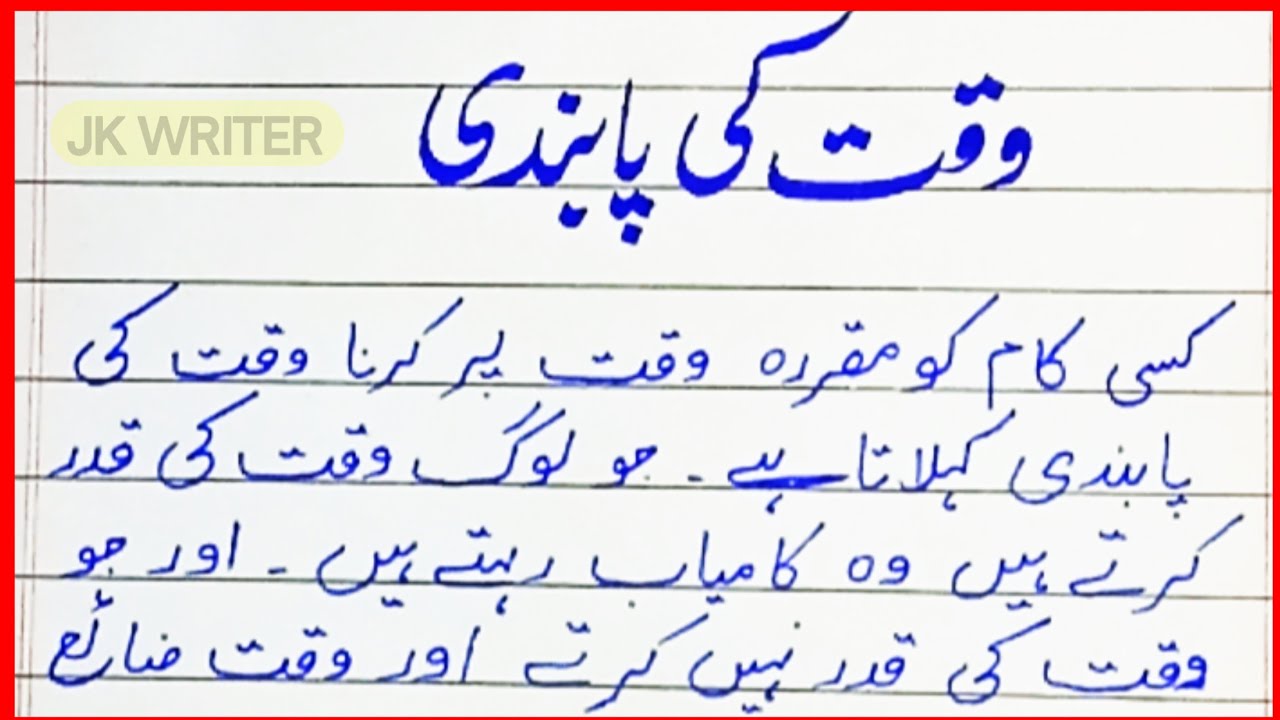 وقت کی پابندی
JK WRITER
کسی کام کو مقررہ وقت پر کرنا وقت کی
پابندی کہلاتا ہے ۔ جو لوگ وقت کی قدر
کرتے ہیں وہ کامیاب رہتے ہیں ۔ اور جو
وقت کی قدر نہیں کرتے اور وقت ضائع